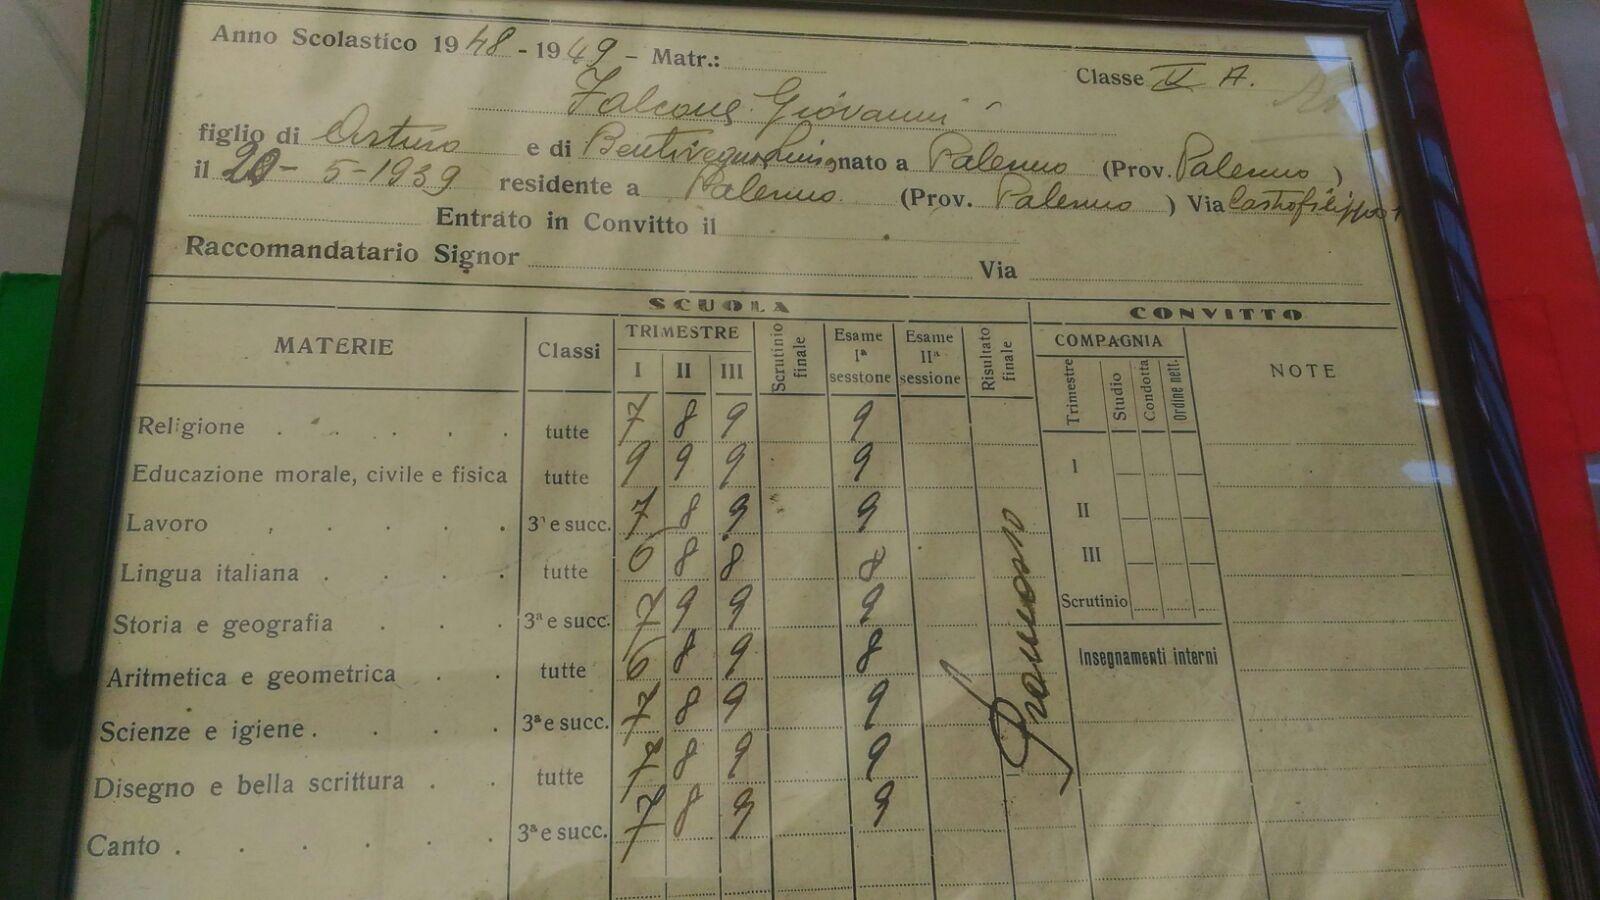 Anno Scolastico 1948 - 1949 - Matr.:
Classe V A.
Falcone Giovanni
figlio di Arturo e di Bentivegna Luisa nato a Palermo (Prov. Palermo)
il 20 - 5 - 1939 residente a Palermo (Prov. Palermo) Via Castrofilippo 1
Entrato in Convitto il
Raccomandatario Signor Via
SCUOLA CONVITTO
MATERIE Classi TRIMESTRE I II III Scrutinio finale Esame Iª sessione Esame IIª sessione Risultato finale COMPAGNIA Trimestre Studio Condotta Ordine nett. NOTE
Religione tutte 7 8 9 9
Educazione morale, civile e fisica tutte 9 9 9 9 I
Lavoro 3ª e succ. 7 8 9 9 II
Lingua italiana tutte 6 8 8 8 III
Storia e geografia 3ª e succ. 7 9 9 9 Scrutinio
Aritmetica e geometrica tutte 6 8 9 8 Insegnamenti interni
Scienze e igiene 3ª e succ. 7 8 9 9
Disegno e bella scrittura tutte 7 8 9 9
Canto 3ª e succ. 7 8 9 9
Promosso